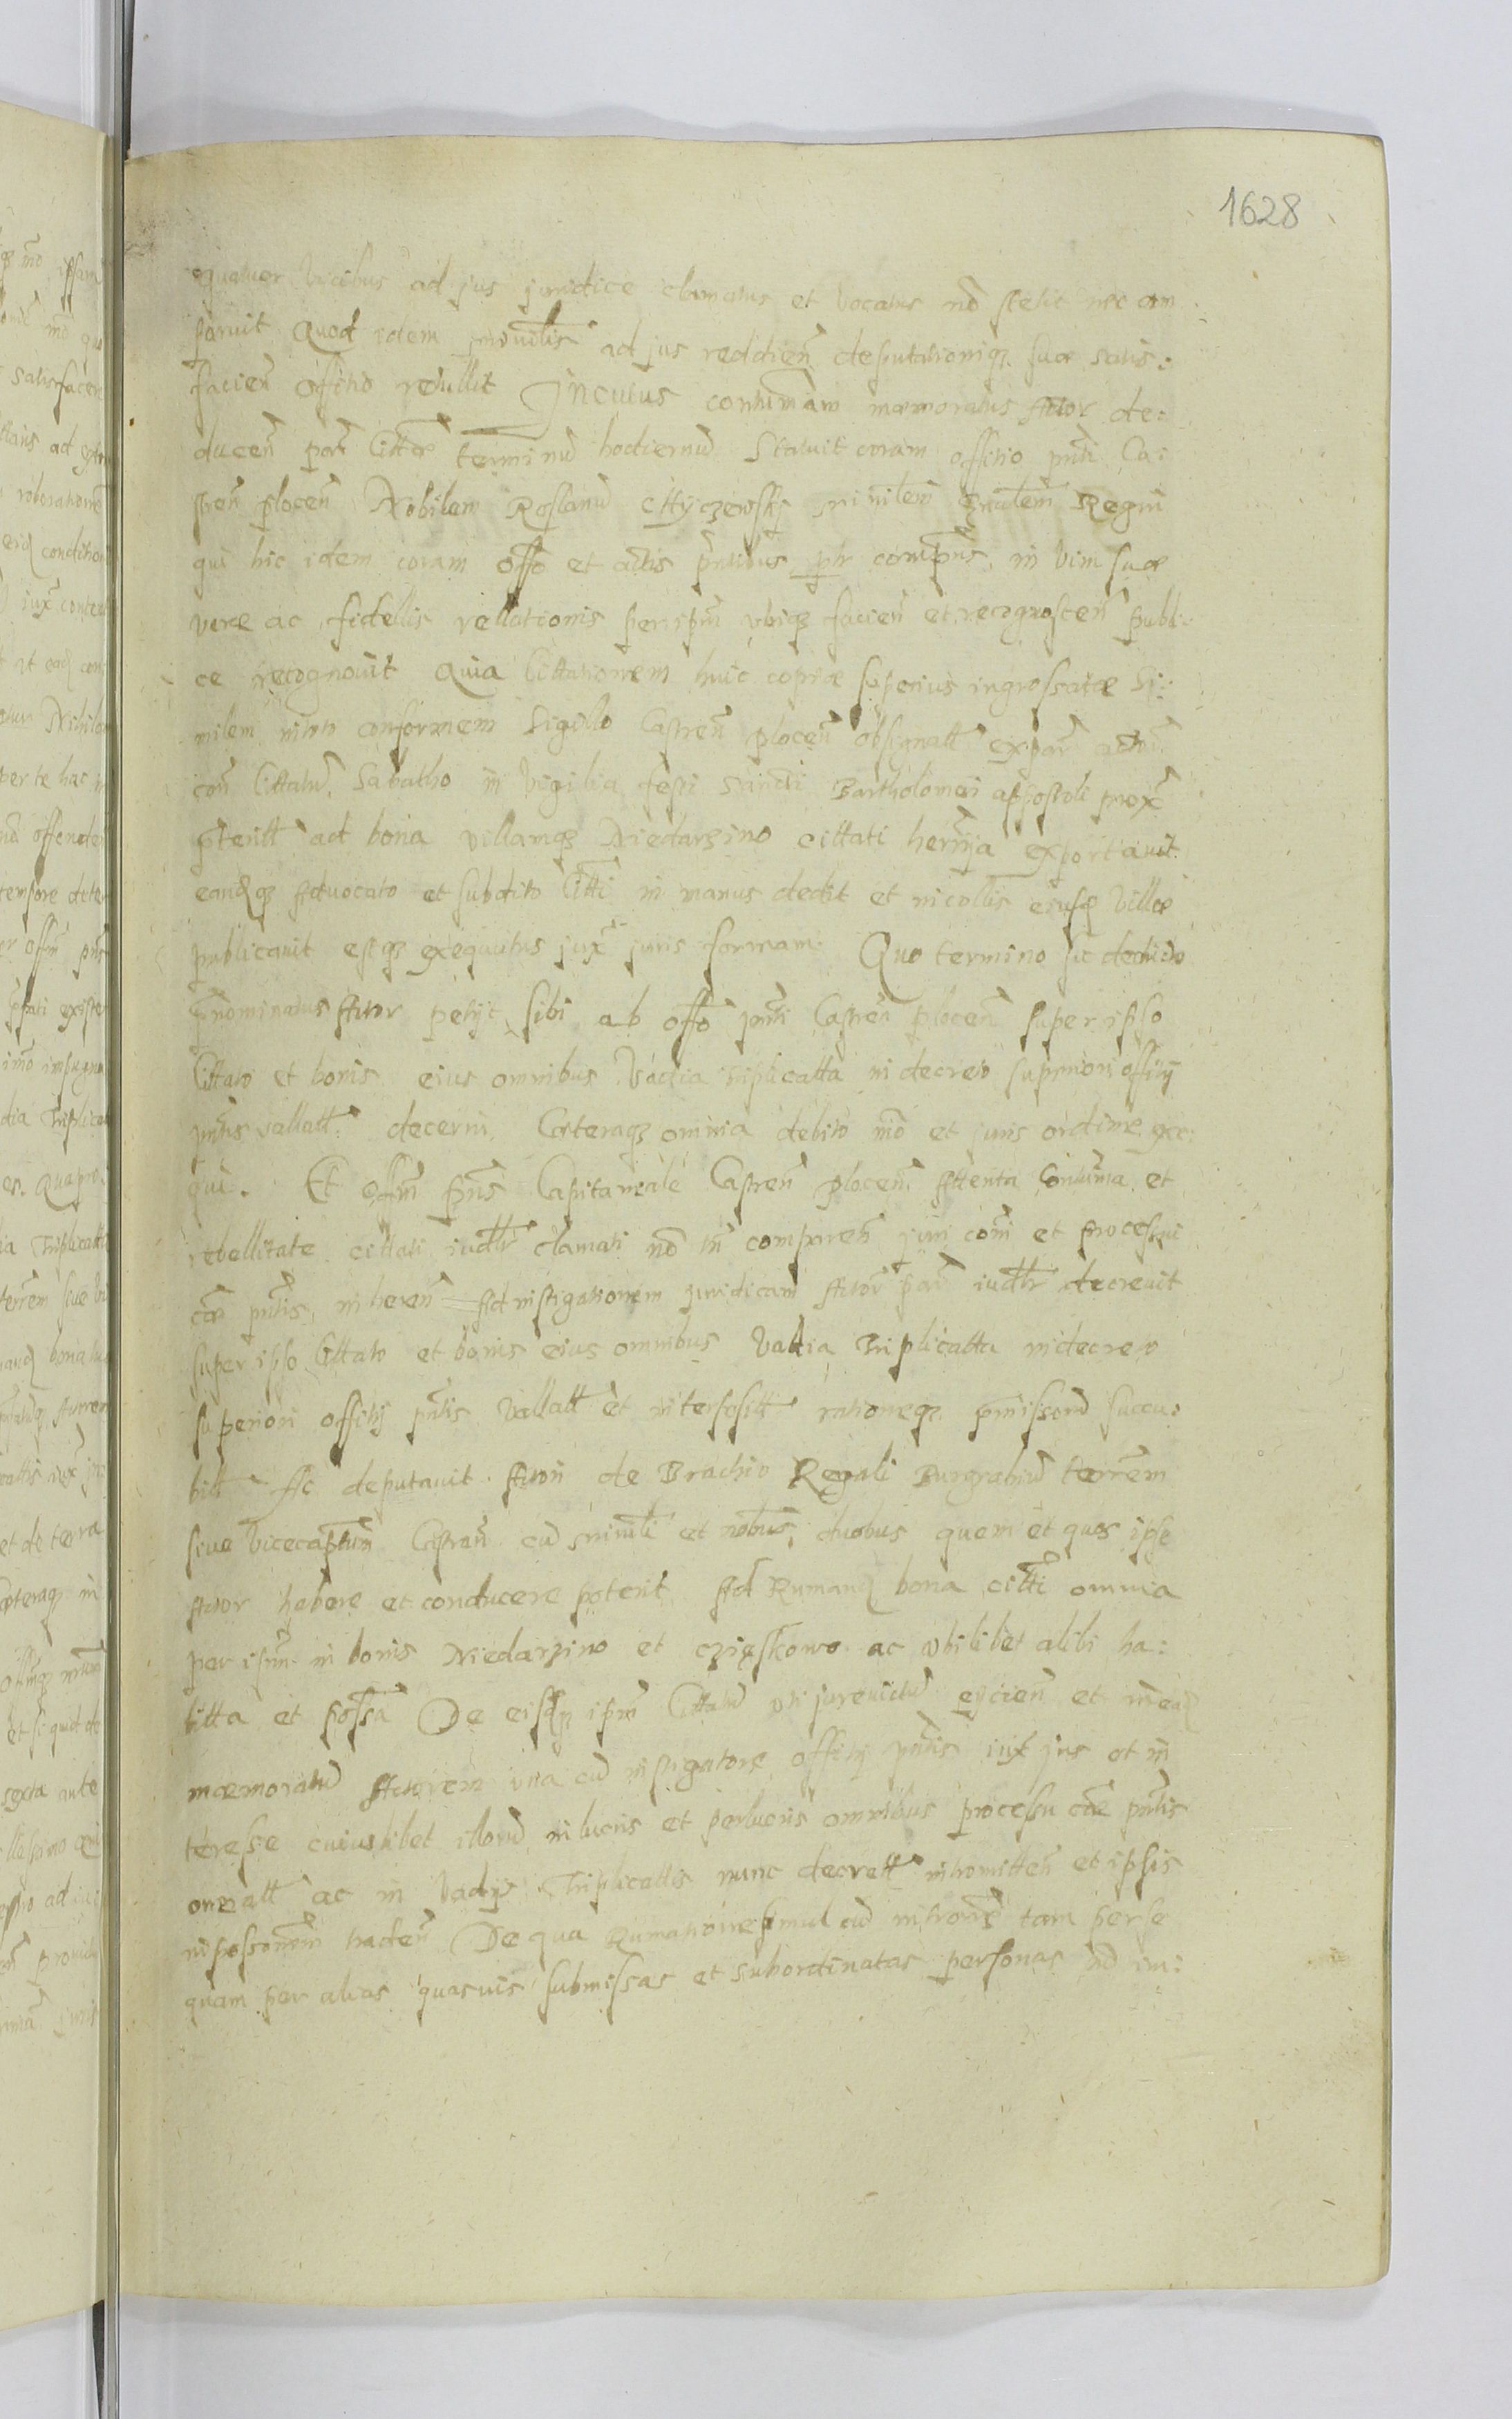 1628
quatuor vicibus ad jus juridice clamatus et vocatus nō stetit nec com
paruit Quod idem ad jus reddien̄ deputationiq; suæ satis:
facien̄ offitio retullit Incuius contumām mæmoratus Actor de:
ducen̄ terminū hodiernū Statuit coram offitio pn̄ti Ca:
stren̄ plocen̄ Nobilem Roslanū gnālem̄ Regni
qui hic idem coram offō et actis pn̄tibus plr compn̄s, in vim suæ
veræ ac fidellis rellationis per ipm̄ vbiq; facien̄ et recognoscen̄ publi:
ce recognovit Quia Cittationem huic copiæ superius ingrossatæ Si:
milem imo conformem Sigillo Castren̄ plocen̄ obsignatt̄ ex par̄ actor̄
con̄ Cittatū, Sabatho in vigilia festi Sancti Bartholomei appostoli prox̄
pterit̄t ad bona villamq; Niedarzino cittati exportauit
eandq; Aduocato et subdito Citt̄i in manus dedit et incollis eiusd villæ
publicauit estq; exequutus jux̄ juris formam. Quo termino sic deducto
p̄nominatus Actor petijt sibi ab offō pn̄ti Castren̄ plocen̄ super ipso
Cittato et bonis eius omnibus Vadia triplicatta in decreto superiori offitij
pn̄tis vallatt̄. decerni, Cæteraq; omnia debito mō et juris ordine exe:
qui. Et offm̄ pn̄s Capitaneale Castren̄ plocen̄ Attenta Contuma et
rebellitate cittati iudtr̄ clamati nō tn̄ comparen̄ juri com̄i et processui
cæ pn̄tis, inheren̄ Ad instigationem juridicam Actor̄ par̄ iudtr̄ decreuit
super ipso Cittato et bonis eius omnibus Vadia Triplicatta in decreto
superiori offitij pn̄tis vallatt̄ et interpositt̄ rationeq; pmissorū succu:
bit̄ Ac deputauit Actori de Brachio Regali Burgrabiū terrēm
siue vicecaptum̄ Castren̄ cū et nōbus, duobus quem et quos ipse
Actor habere et conducere poterit Ad Rumand bona citt̄i omnia
per ipsum in bonis Niedarzino et czięskowo ac vbilibet alibi ha:
bitta et possā De eisdq; ipm̄ Cittatū vti jurevictū eijcien̄ et in ead
mæmoratū Actorem vna cū instigatore offitij pn̄tis iux̄ jus et in
teresse cuiuslibet illorū in lucris et perlucris omnibus processu cæ pn̄tis
oneratt̄ ac in Vadijs Triplicattis nunc decrett̄ intromitten̄ et ipsis
in possonem̄ traden̄ De qua Rumatione simul cū introm̄e tam per se
quam per alias quasuis submissas et subordinatas personas nō im: